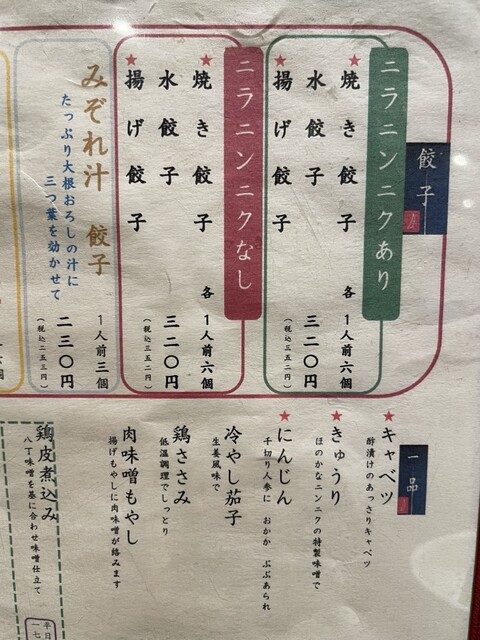 餃子
ニラニンニクあり
★焼き餃子
水餃子
★揚げ餃子
各 1人前六個
三二〇円
（税込三五二円）
ニラニンニクなし
★焼き餃子
水餃子
★揚げ餃子
各 1人前六個
三二〇円
（税込三五二円）
みぞれ汁 餃子
たっぷり大根おろしの汁に
三つ葉を効かせて
1人前三個
二三〇円
（税込二五三円）
一品
★キャベツ
酢漬けのあっさりキャベツ
★きゅうり
ほのかなニンニクの特製味噌で
★にんじん
千切り人参に おかか ぶぶあられ
冷やし茄子
生姜風味で
鶏ささみ
低温調理でしっとり
肉味噌もやし
揚げもやしに肉味噌が絡みます
鶏皮煮込み
八丁味噌を基に合わせ味噌仕立て
平日
一七